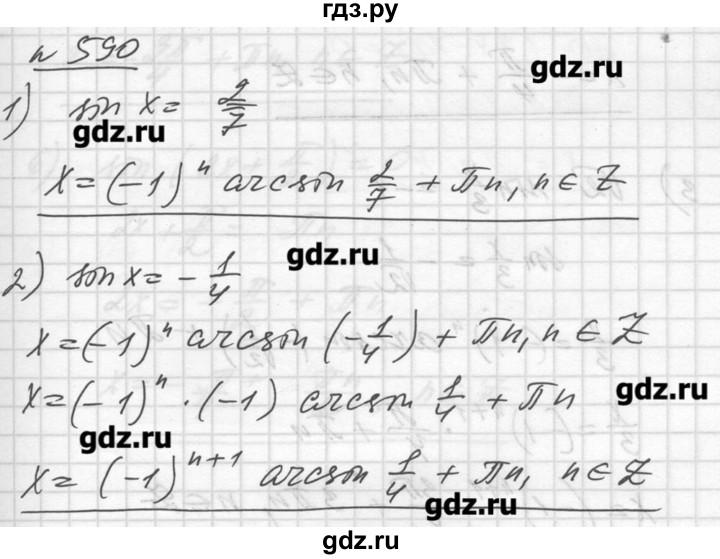 гдз.ру
n 590
gdz.ru
1) sin x = 2/7
gdz.ru
x = (-1)^n arcsin 2/7 + πn, n ∈ Z
gdz.ru
2) sin x = - 1/4
x = (-1)^n arcsin (-1/4) + πn, n ∈ Z
gdz.ru
x = (-1)^n · (-1) arcsin 1/4 + πn
gdz.ru
x = (-1)^{n+1} arcsin 1/4 + πn, n ∈ Z
gdz.ru
gdz.ru